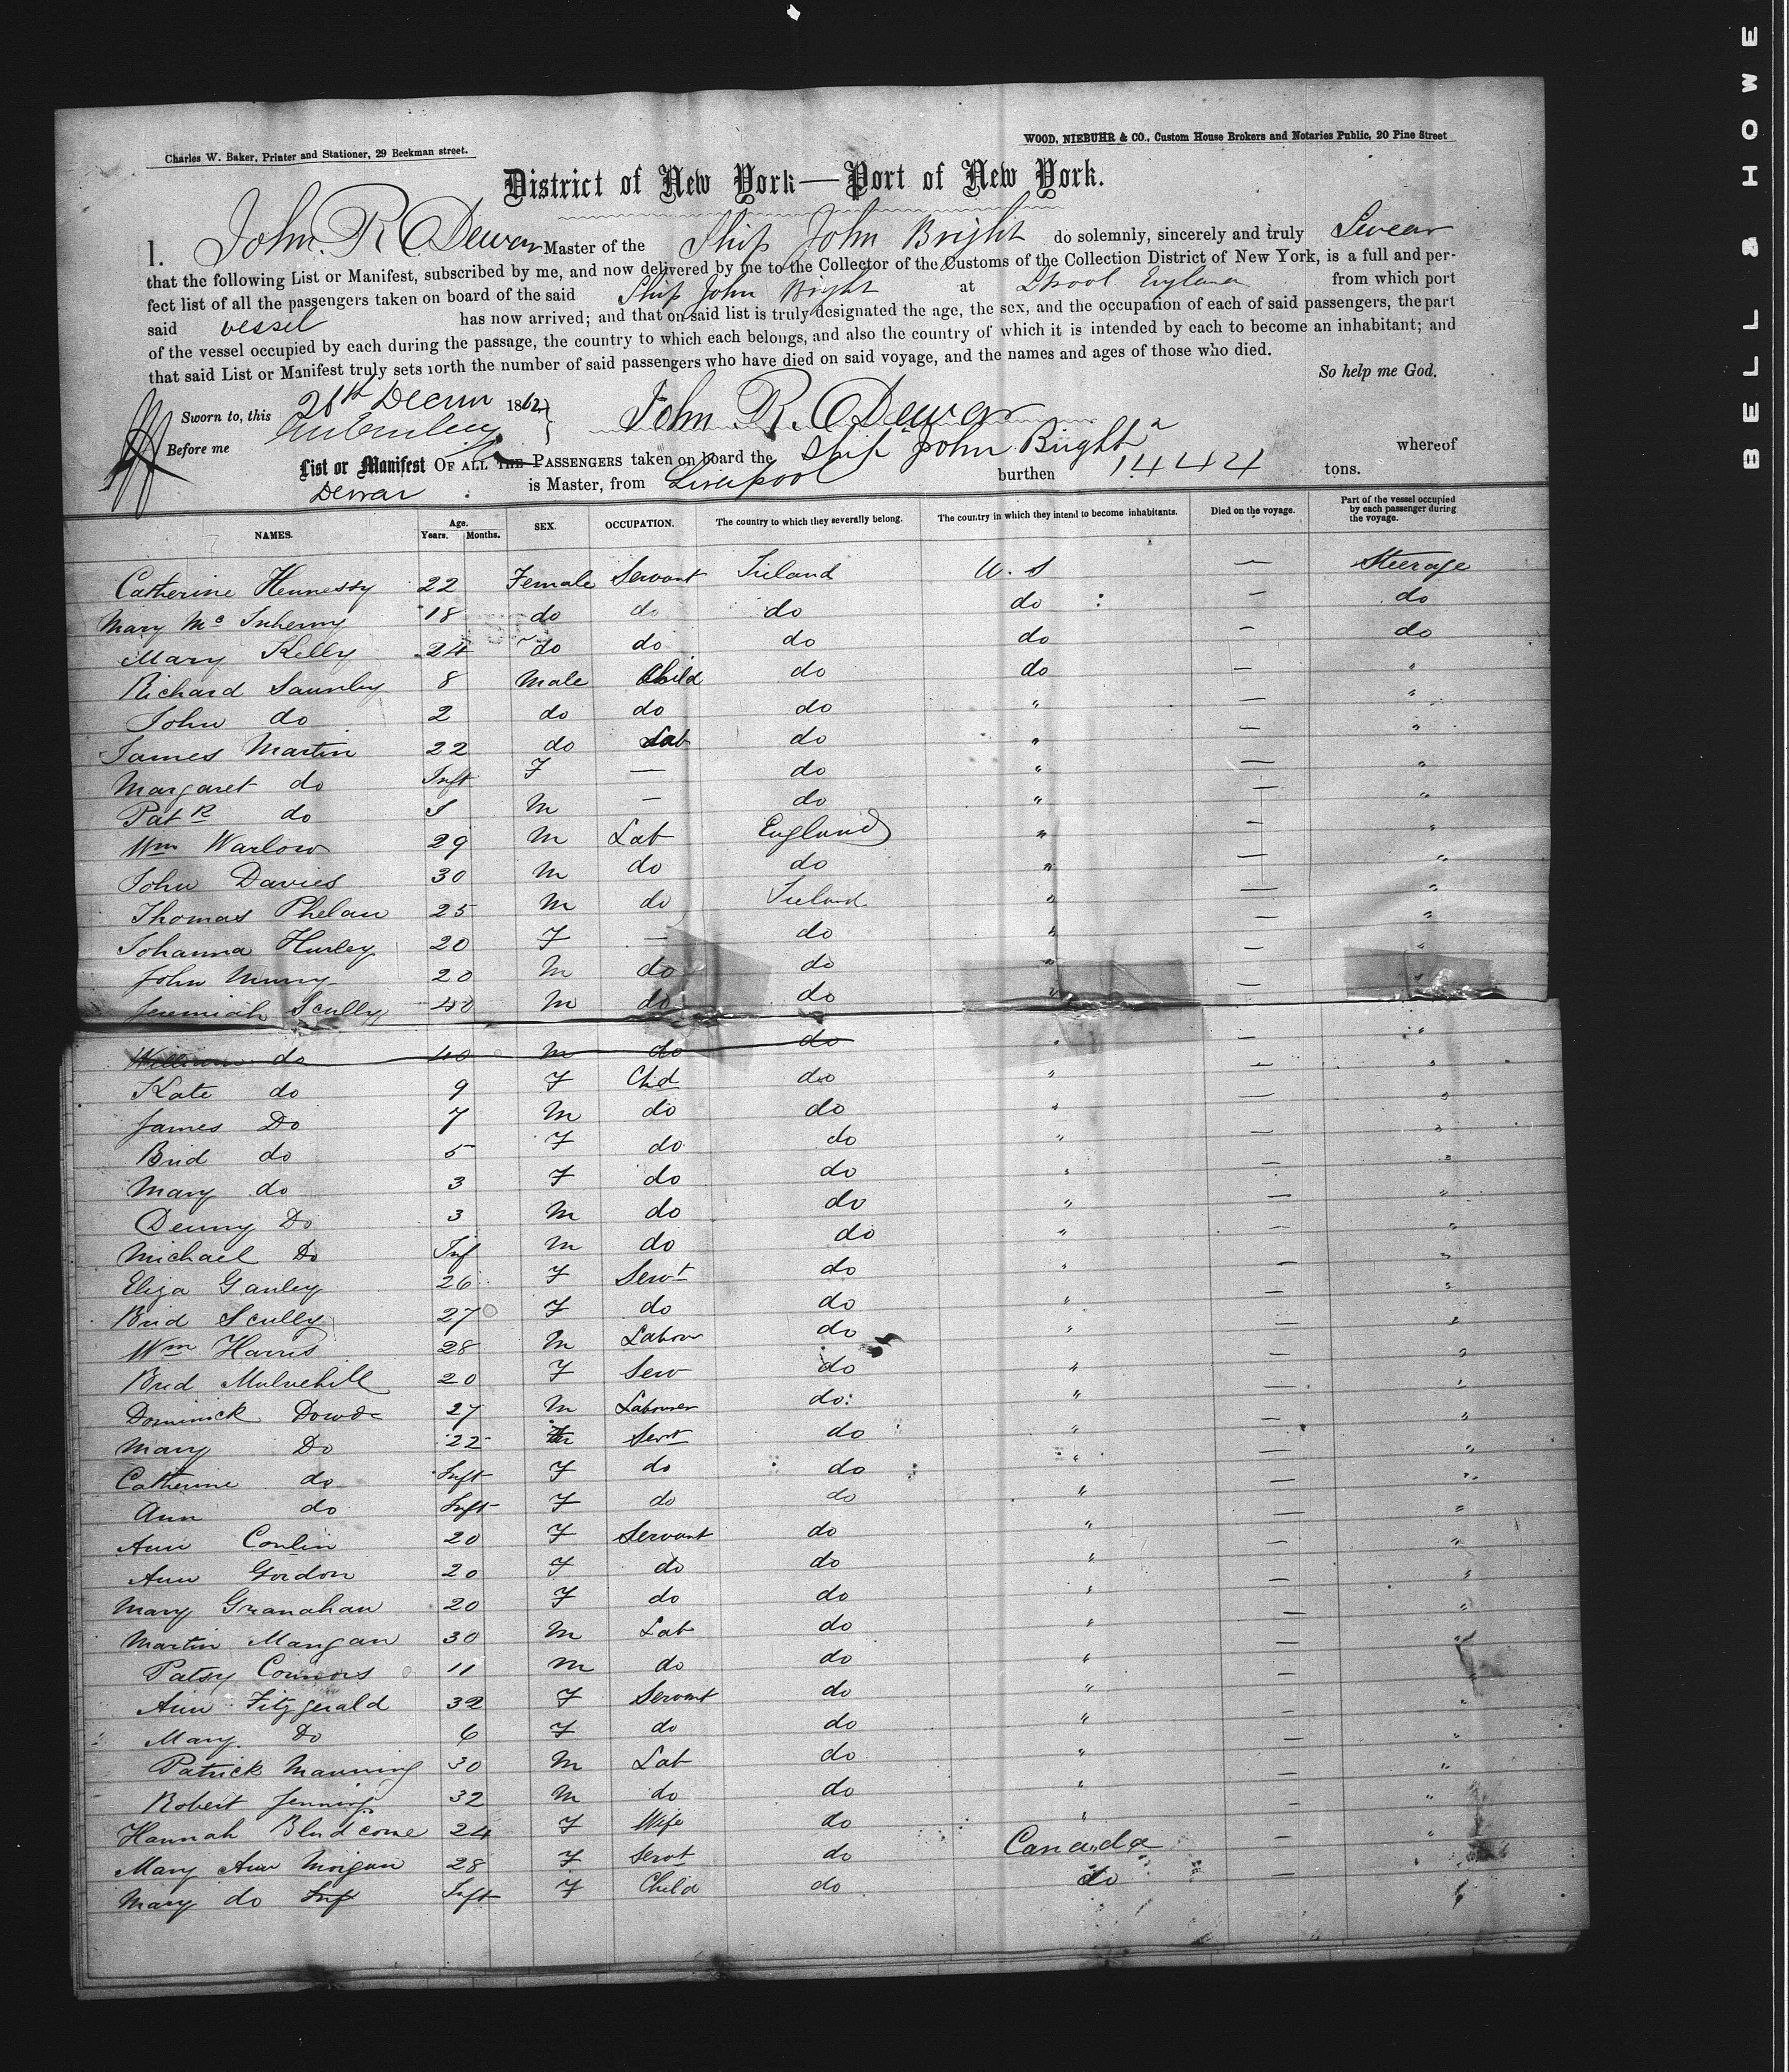 BELL & HOWE
Charles W. Baker, Printer and Stationer, 29 Beekman street.
WOOD, NIEBUHR & CO., Custom House Brokers and Notaries Public, 20 Pine Street
District of New York—Port of New York.
I. John. R. Dewar Master of the Ship John Bright do solemnly, sincerely and truly Swear
that the following List or Manifest, subscribed by me, and now delivered by me to the Collector of the Customs of the Collection District of New York, is a full and per-
fect list of all the passengers taken on board of the said Ship John Bright at Lpool England from which port
said vessel has now arrived; and that on said list is truly designated the age, the sex, and the occupation of each of said passengers, the part
of the vessel occupied by each during the passage, the country to which each belongs, and also the country of which it is intended by each to become an inhabitant; and
that said List or Manifest truly sets forth the number of said passengers who have died on said voyage, and the names and ages of those who died.
So help me God.
Sworn to, this 26th Decem 1862
John R. Dewar
Before me
List or Manifest OF ALL THE PASSENGERS taken on board the Ship John Bright whereof
Dewar is Master, from Liverpool burthen 1444 tons.
NAMES. Age. Years. Months. SEX. OCCUPATION. The country to which they severally belong. The country in which they intend to become inhabitants. Died on the voyage. Part of the vessel occupied by each passenger during the voyage.
Catherine Hennessy 22 Female Servant Ireland U.S — Steerage
Mary Mc 18 do do do do — do
Mary Kelly 24 do do do do — do
Richard 8 Male Child do do — "
John do 2 do do do " — "
James Martin 22 do Lab do " — "
Margaret do Inft F — do " — "
Pat R do M — do " — "
Wm Warlow 29 M Lab England " — "
John Davies 30 M do do " — "
Thomas Phelan 25 M do Ireland " — "
Johanna Hurley 20 F — do " — "
John Murry 20 M do do " — "
Jeremiah Scully 40 M do do " —
William do 40 M do do " — "
Kate do 9 F Chd do " — "
James Do 7 M do do " — "
Brid do 5 F do do " — "
Mary do 3 F do do " — "
Denny Do 3 M do do " — "
Michael Do Inf M do do " — "
Eliza Ganley 26 F Servt do " — "
Brid Scully 27 F do do " — "
Wm Harris 28 M Labour do " — "
Brid Mulvehill 20 F Serv do " — "
Dominick Dowd 27 M Labourer do: " — "
Mary Do 22 Servt do " — "
Catherine do Inft F do do " — "
Ann do Inft F do do " — "
Ann Conlin 20 F Servant do " — "
Ann Gordon 20 F do do " — "
Mary Granahan 20 F do do " — "
Martin Mangan 30 M Lab do " — "
Patsy Connors 11 M do do " — "
Ann Fitzgerald 32 F Servant do " — "
Mary. Do 6 F do do " — "
Patrick Manning 30 M Lab do " — "
Robert Jennings 32 M do do " — "
Hannah 24 F Wife do " — "
Mary Ann Morgan 28 F Servt do Canada — "
Mary do Inf Inft F Child do do — "